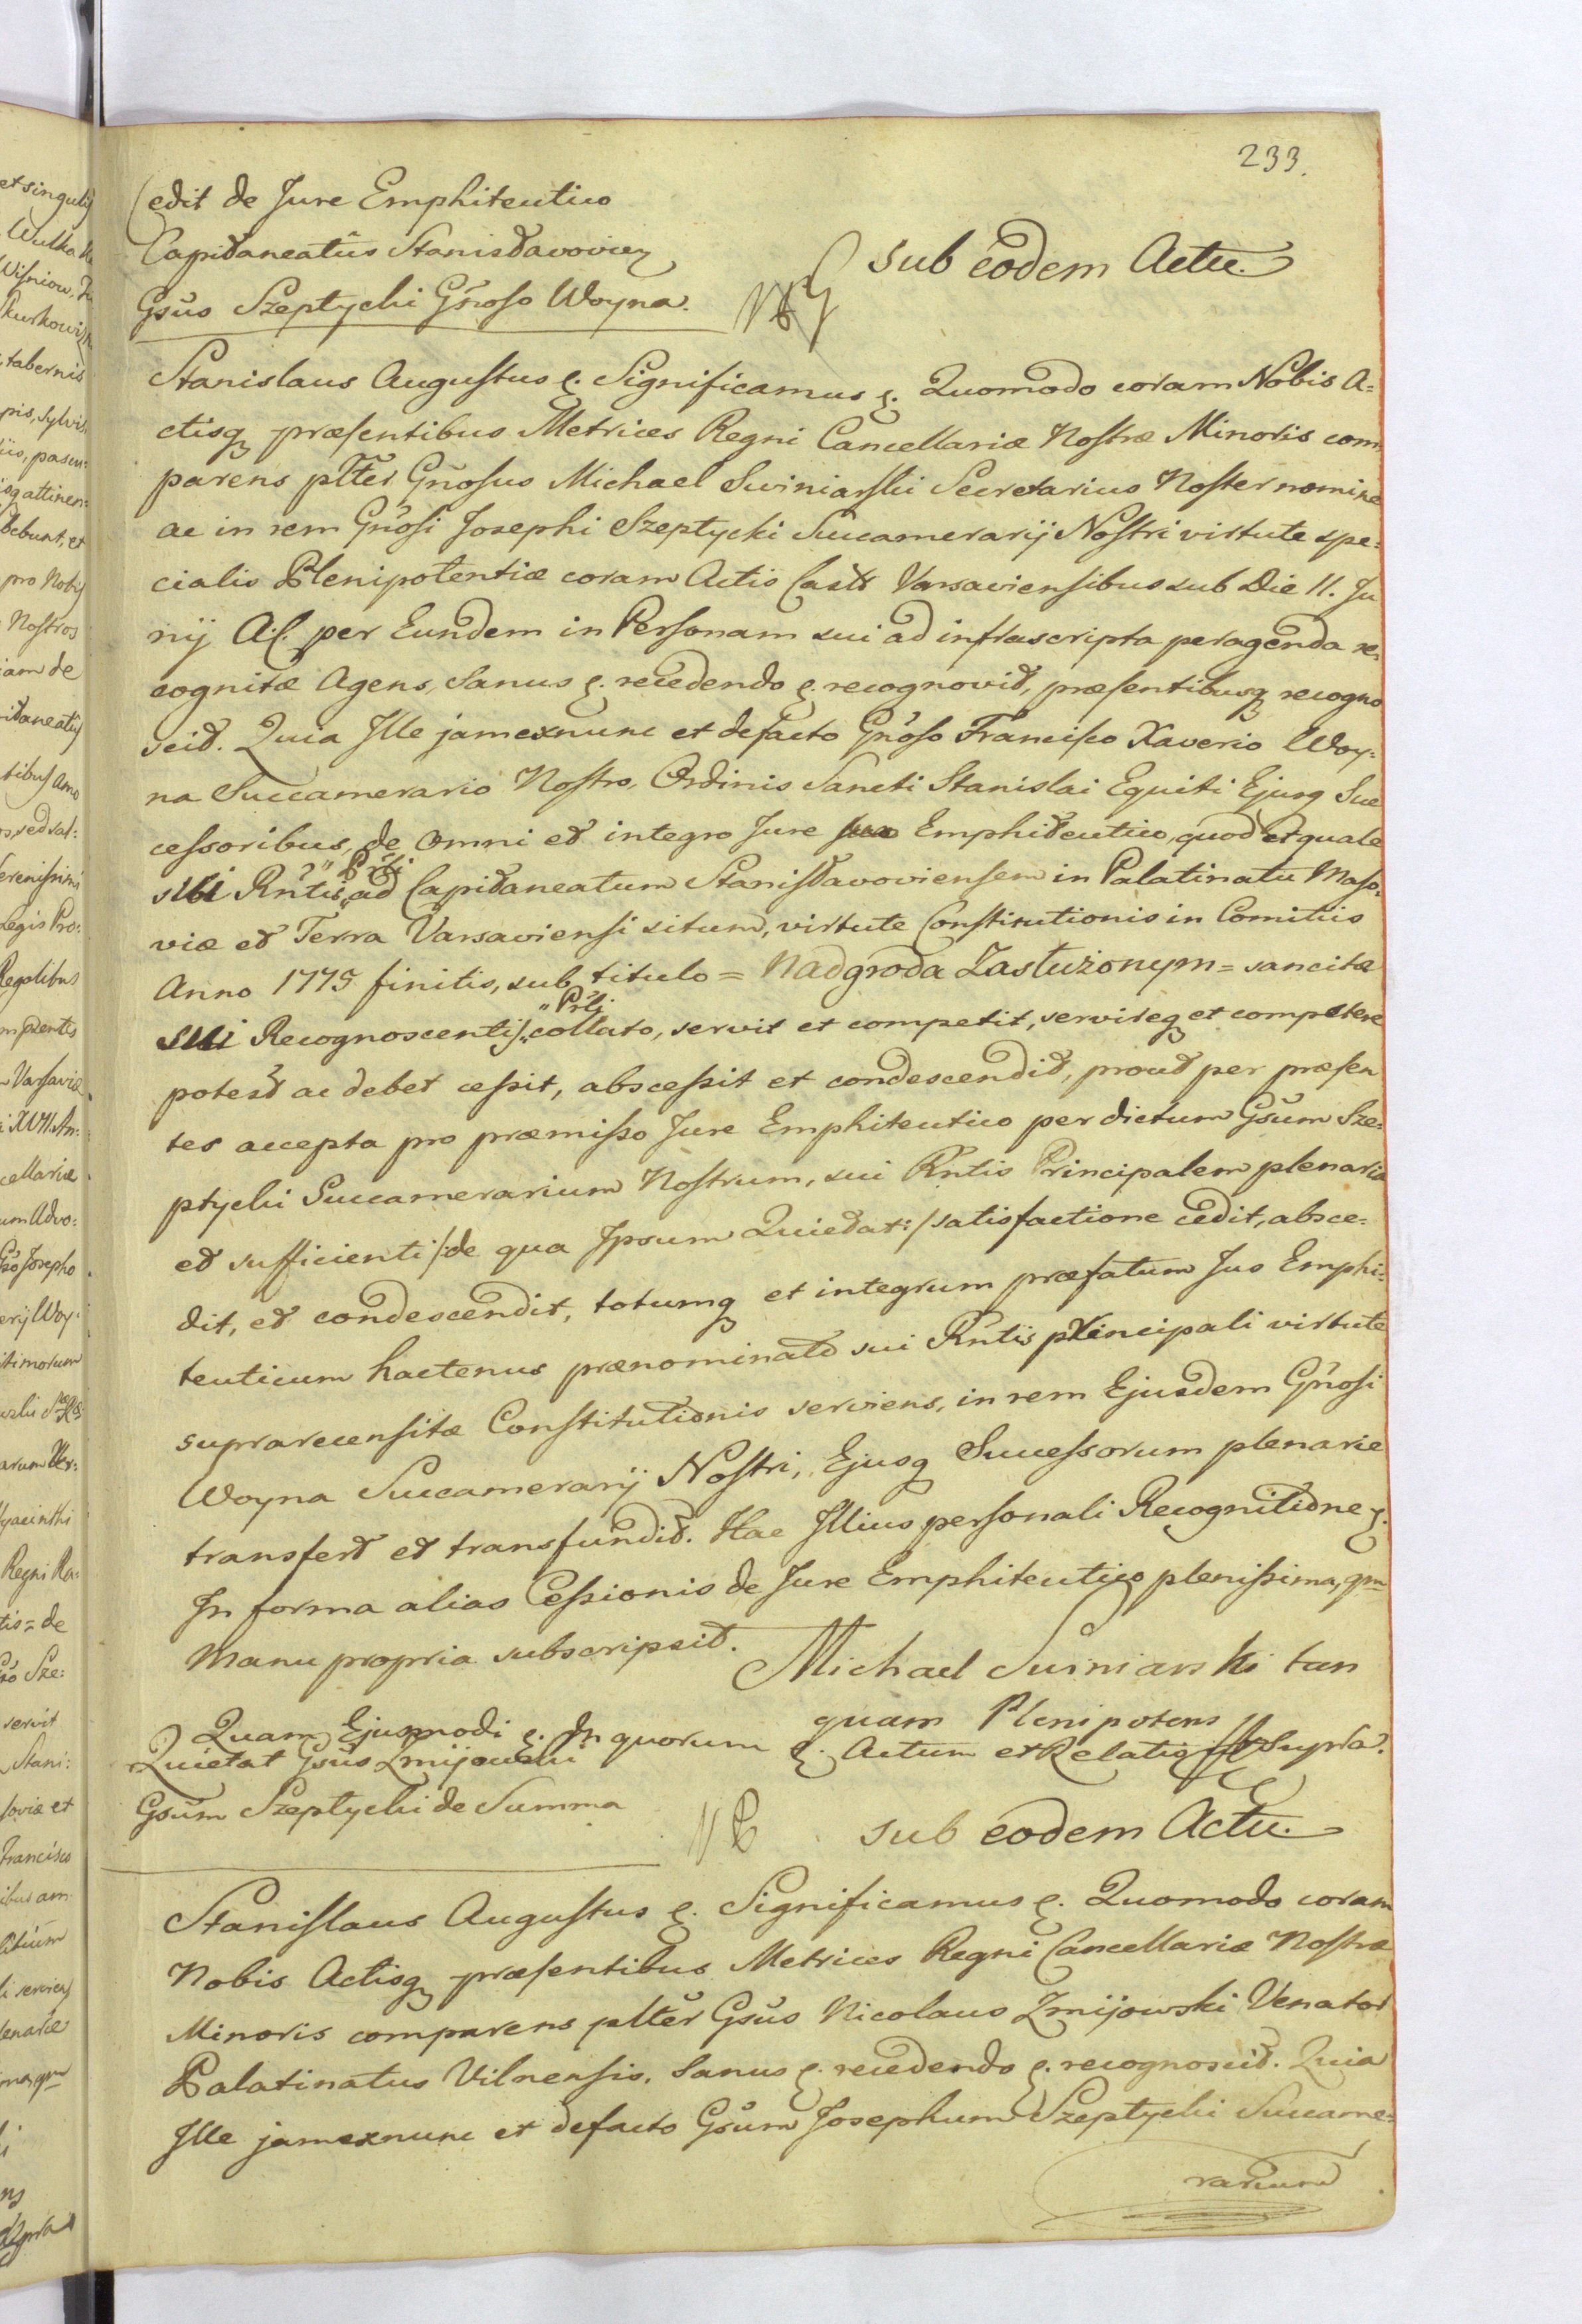 233.
Cedit de Jure Emphiteutico
Capitaneatûs Stanisławowien
Gsũs Szeptycki Gñoso Woyna.
sub eodem Actu.
Stanislaus Augustus &. Significamus &. Quomodo coram Nobis A=
ctisq præsentibus Metrices Regni Cancellariæ Nostræ Minoris com
parens plter Gñosus Michael Swiniarski Secretarius Noster nomine
ac in rem Gñosi Josephi Szeptycki Succamerarij Nostri virtute spe=
cialis Plenipotentiæ coram Actis Castr Varsaviensibus sub Die 11. Ju
nij A.C. per Eundem in Personam sui ad infrascripta peragenda re=
cognitæ Agens, Sanus &. recedendo &. recognovit, præsentibusq recogno
scit. Quia Ille jamexnunc et defacto Gñoso Francisco Xaverio Woy=
na Succamerario Nostro, Ordinis Sancti Stanislai Equiti Ejusq Suc
cessoribus, de omni et integro Jure Emphiteutico, quod et quale
sui Rñtis, "Prli ad Capitaneatum Stanisławoviensem in Palatinatu Maso=
viæ et Terra Varsaviensi situm, virtute Constitutionis in Comitiis
Anno 1775 finitis, sub titulo = Nadgroda Zasłużonym = sancitæ
sui Recognoscentis "Prli collato, servit et competit, servireq et competere
potest ac debet cessit, abscessit et condescendit, prout per præsen
tes accepta pro præmisso Jure Emphiteutico per dictum Gsũm Sze=
ptycki Succamerarium Nostrum, sui Rñtis Principalem plenaria
et sufficienti /:de qua Ipsum Quietat:/ satisfactione cedit, absce=
dit, et condescendit, totumq et integrum præfatum Jus Emphi=
teuticum hactenus prænominato sui Rñtis principali virtute
suprarecensitæ Constitutionis serviens, in rem Ejusdem Gñosi
Woyna Succamerarij Nostri, Ejusq Successorum plenarie
transfert et transfundit. Hac Illius personali Recognitione &.
In forma alias Cessionis de Jure Emphiteutico plenissima, qm
Manu propria subscripsit.
Michael Swiniarski tan
quam Plenipotens
Quam Ejusmodi &. In quorum &. Actum et Relatio ut Supra.
Quietat Gsũs Zmijowski
Gsũm Szeptycki de Summa
sub eodem Actu.
Stanislaus Augustus &. Significamus &. Quomodo coram
Nobis Actisq præsentibus Metrices Regni Cancellariæ Nostræ
Minoris comparens plter Gsũs Nicolaus Zmijowski Venator
Palatinatus Vilnensis. Sanus &. recedendo &. recognoscit. Quia
Ille jamexnunc et defacto Gsũm Josephum Szeptycki Succame=
rarium